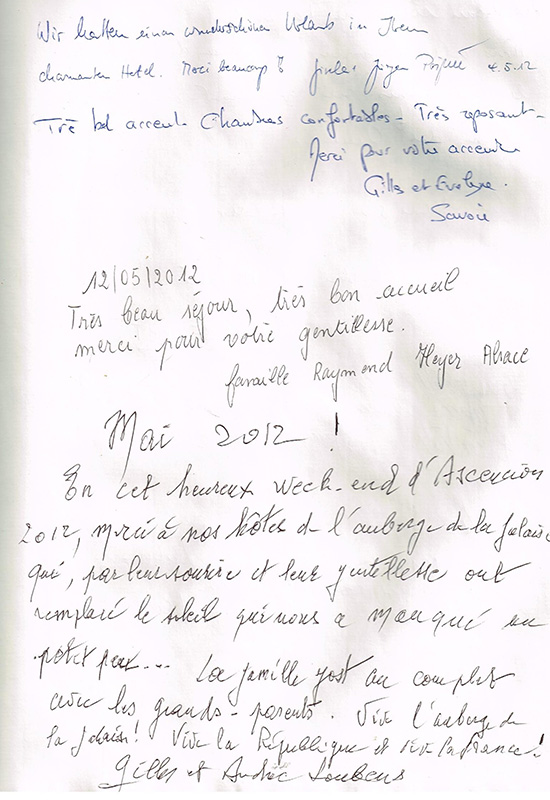 Wir hatten einen wunderschönen Urlaub in Ihrem
charmanten Hotel. Merci beaucoup 4.5.12
Très bel accueil. Chambres confortables - Très reposant -
Merci pour votre accueil
Gilles et Evelyne.
Savoie
12/05/2012
Très beau séjour, très bon accueil
merci pour votre gentillesse.
famille Raymond Heyer Alsace
Mai 2012 !
En cet heureux week-end d'Ascension
2012, merci à nos hôtes de l'auberge de la falaise
qui, par leur sourire et leur gentillesse ont
remplacé le soleil qui nous a manqué un
petit peu... La famille Yost au complet
avec les grands-parents. Vive l'auberge de
la falaise! Vive la République et vive la France!
Gilles et Andrée Loubens